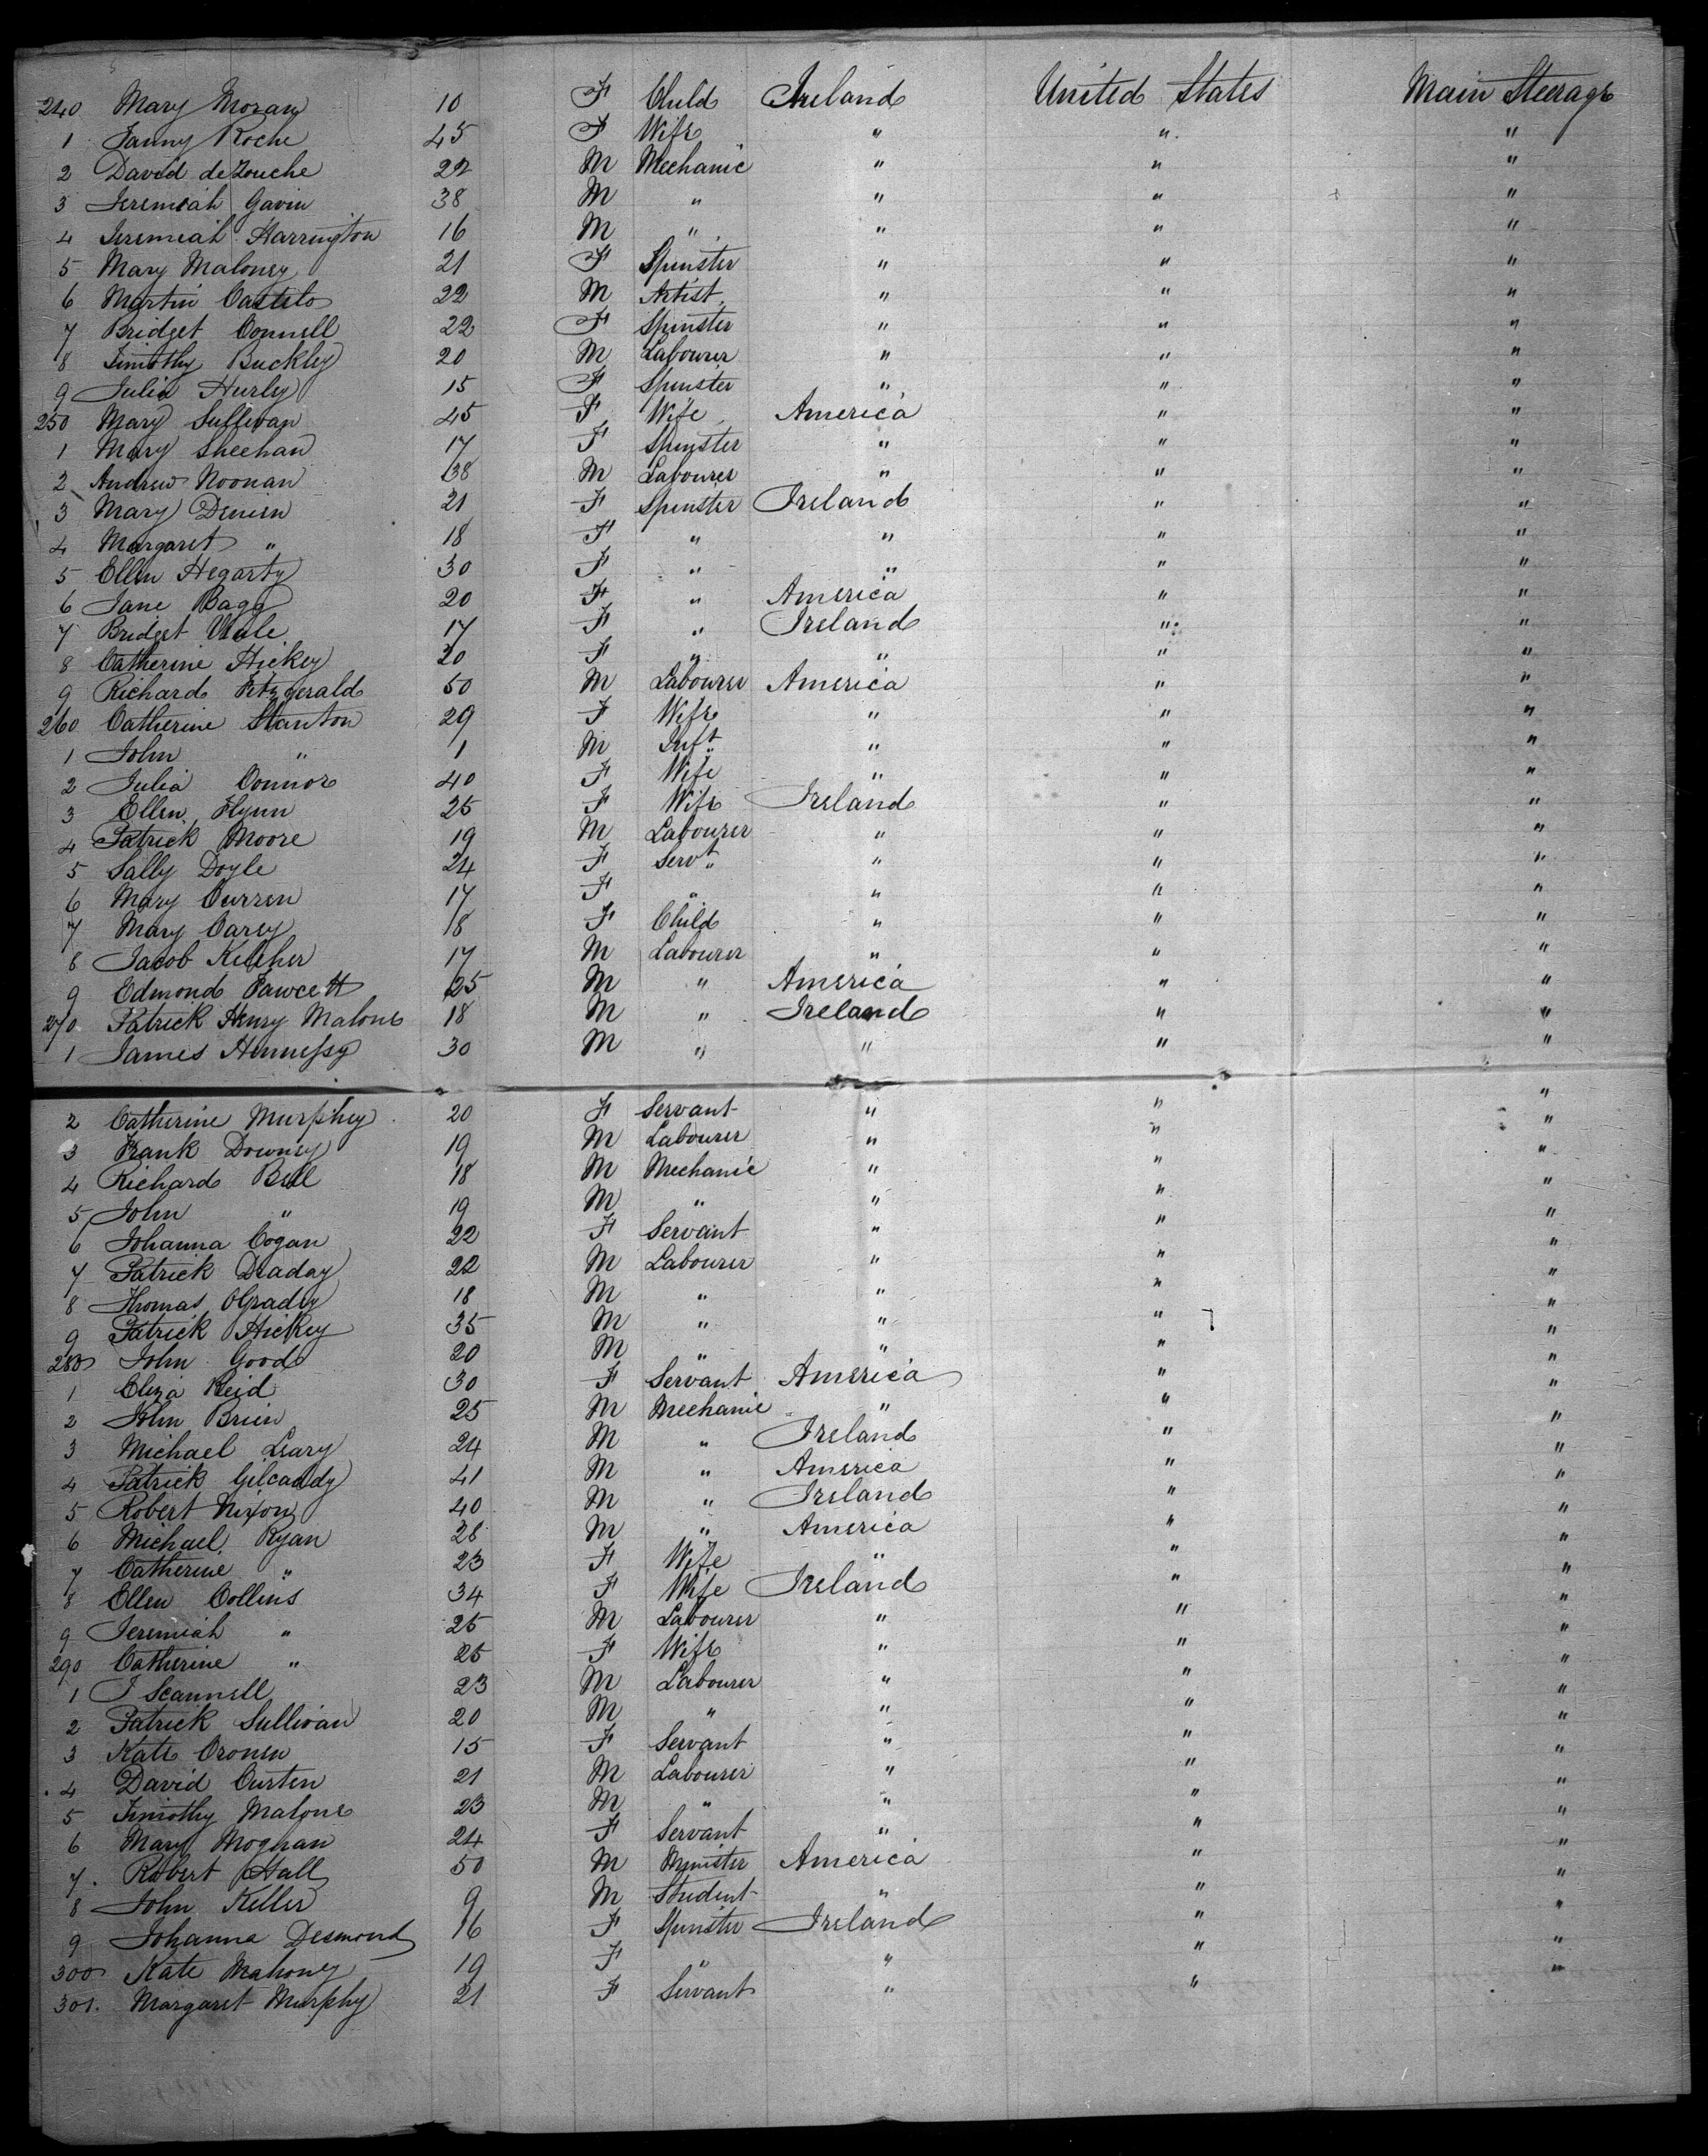 240 Mary Moran 10 F Child Ireland United States Main Steerage
1 Fanny Roche 45 F Wife " " "
2 David de Zouche 22 M Mechanic " " "
3 Jeremiah Gavin 38 M " " " "
4 Jeremiah Harrington 16 M " " " "
5 Mary Maloney 21 F Spinster " " "
6 Martin Castelo 22 M Artist " " "
7 Bridget Connell 22 F Spinster " " "
8 Timothy Buckley 20 M Labourer " " "
9 Julia Hurley 15 F Spinster " " "
250 Mary Sullivan 45 F Wife America " "
1 Mary Sheehan 17 F Spinster " " "
2 Andrew Noonan 38 M Labourer " " "
3 Mary Dinien 21 F Spinster Ireland " "
4 Margaret " 18 F " " " "
5 Ellen Hegarty 30 F " " " "
6 Jane Bagg 20 F " America " "
7 Bridget 17 F " Ireland " "
8 Catherine Hickey 20 F " " " "
9 Richard Fitzgerald 50 M Labourer America " "
260 Catherine Stanton 29 F Wife " " "
1 John " 1 M Inft " " "
2 Julia Connor 40 F Wife " " "
3 Ellen Flynn 25 F Wife Ireland " "
4 Patrick Moore 19 M Labourer " " "
5 Sally Doyle 24 F Servt " " "
6 Mary Curren 17 F " " " "
7 Mary Carey 18 F Child " " "
8 Jacob Keleher 17 M Labourer " " "
9 Edmond Fawcett 25 M " America " "
270 Patrick Henry Malone 18 M " Ireland " "
1 James Hennessy 30 M " " " "
2 Catherine Murphey 20 F Servant " " "
3 Frank Downey 19 M Labourer " " "
4 Richard Bell 18 M Mechanic " " "
5 John " 19 M " " " "
6 Johanna Cogan 22 F Servant " " "
7 Patrick Deaday 22 M Labourer " " "
8 Thomas OGrady 18 M " " " "
9 Patrick Hickey 35 M " " " "
280 John Good 20 M " " " "
1 Eliza Reid 30 F Servant America " "
2 John Brien 25 M Mechanic " " "
3 Michael Leary 24 M " Ireland " "
4 Patrick Gilcaddy 41 M " America " "
5 Robert Nixon 40 M " Ireland " "
6 Michael Ryan 28 M " America " "
7 Catherine " 23 F Wife " " "
8 Ellen Collins 34 F Wife Ireland " "
9 Jeremiah " 25 M Labourer " " "
290 Catherine " 25 F Wife " " "
1 J Scannell 23 M Labourer " " "
2 Patrick Sullivan 20 M " " " "
3 Kate Cronen 15 F Servant " " "
4 David Curten 21 M Labourer " " "
5 Timothy Malone 23 M " " " "
6 Mary Mognan 24 F Servant " " "
7 Robert Hall 50 M Minister America " "
8 John Keller 9 M Student " " "
9 Johanna Desmond 16 F Spinster Ireland " "
300 Kate Mahoney 19 F " " " "
301. Margaret Murphy 21 F Servant " "